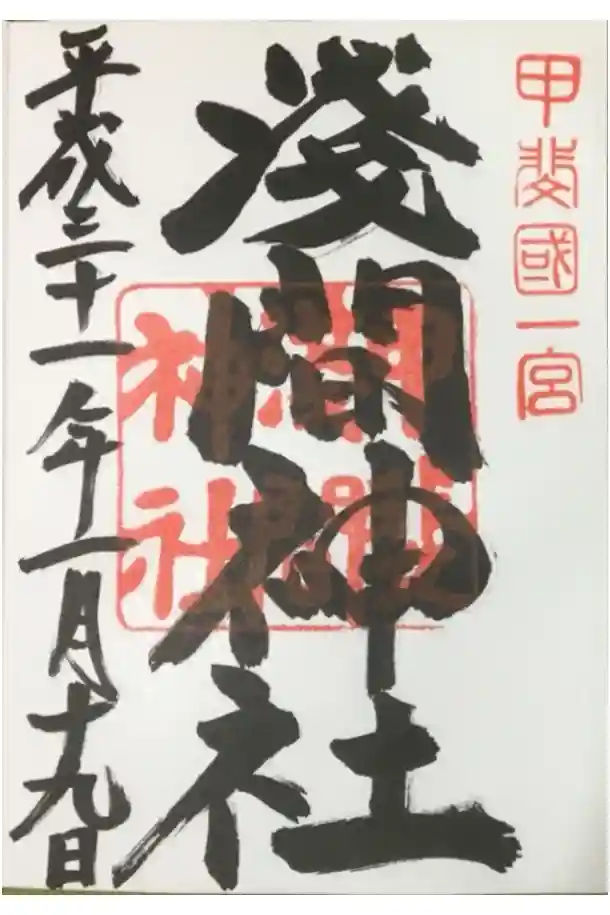 甲斐國一宮
淺間神社
平成三十一年一月十九日